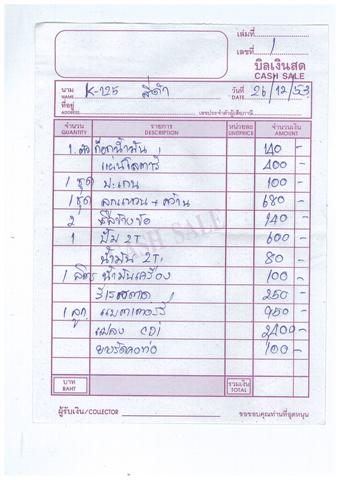 เล่มที่
เลขที่ 1
บิลเงินสด
CASH SALE
นาม K-125 สีดำ วันที่ 26/12/53
NAME DATE
ที่อยู่
ADDRESS เลขประจำตัวผู้เสียภาษี
จำนวน รายการ หน่วยละ จำนวนเงิน
QUANTITY DESCRIPTION UNIT/PRICE AMOUNT
1 ตัว ก๊อกน้ำมัน 140 -
แผ่นโรตารี่ 400 -
1 ชุด ปะเก็น 100 -
1 ชุด ลูก แหวน + คว้าน 680 -
2 ซีลข้างข้อ 140 -
1 ปั๊ม 2T 600 -
น้ำมัน 2T 80 -
1 ลิตร น้ำมันเครื่อง 100 -
250 -
1 ลูก แบตเตอรี่ 950 -
แปลง CDI 2400 -
ยางรัดคอท่อ 100 -
CASH SALE
บาท รวมเงิน
BAHT TOTAL
ผู้รับเงิน/COLLECTOR ขอขอบคุณท่านที่อุดหนุน